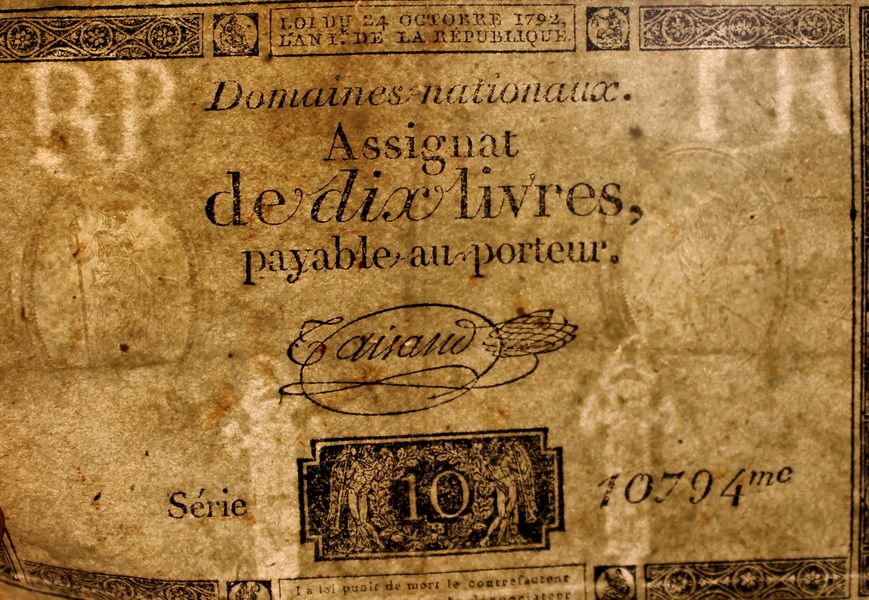 LOI DU 24 OCTOBRE 1792,
L'AN 1r. DE LA RÉPUBLIQUE.
RP FR
Domaines nationaux.
Assignat
de dix livres,
payable au porteur.
Taisaud
Série 10 10794me
La loi punit de mort le contrefacteur
dénonciateur